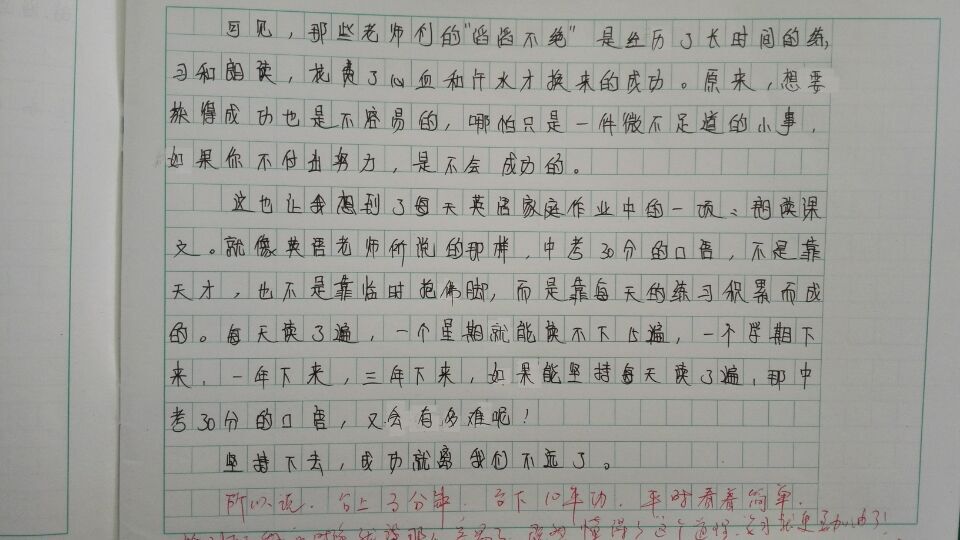 可见，那些老师们的“滔滔不绝”是经历了长时间的练
习和朗读，花费了心血和汗水才换来的成功。原来，想要
获得成功也是不容易的，哪怕只是一件微不足道的小事，
如果你不付出努力，是不会成功的。
这也让我想到了每天英语家庭作业中的一项：朗读课
文。就像英语老师所说的那样，中考30分的口语，不是靠
天才，也不是靠临时抱佛脚，而是靠每天的练习积累而成
的。每天读3遍，一个星期就能读不下15遍，一个学期下
来，一年下来，三年下来，如果能坚持每天读3遍，那中
考30分的口语，又会有多难呢！
坚持下去，成功就离我们不远了。
所以说，台上3分钟，台下10年功，平时看着简单，
懂得了这个道理，